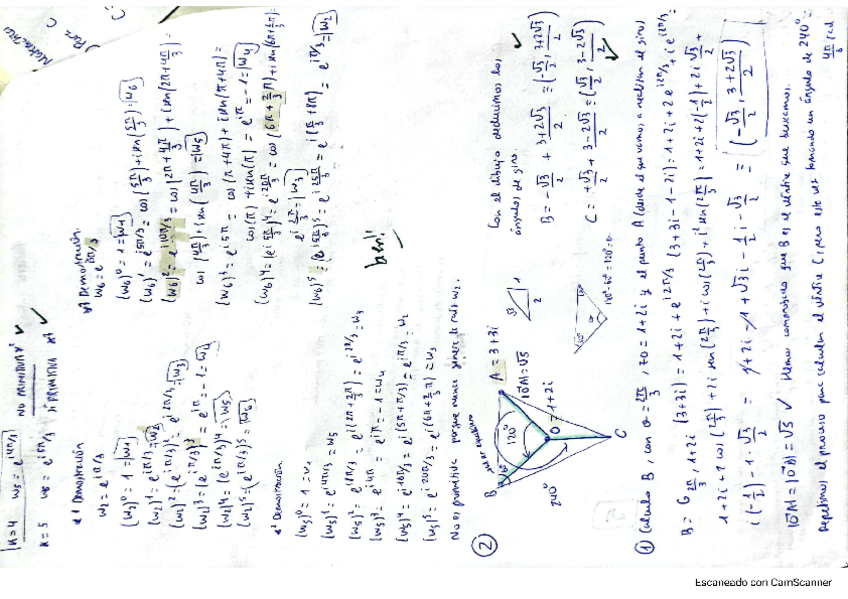 k=4 w5 = e^{i4π/3} NO PRIMITIVA x²
k=5 w6 = e^{i5π/3} SI PRIMITIVA x³
x¹ Demostración
w2 = e^{iπ/3}
(w2)^0 = 1 = w1
(w2)^1 = e^{iπ/3} = w2
(w2)^2 = (e^{iπ/3})^2 = e^{i2π/3} = w3
(w2)^3 = (e^{iπ/3})^3 = e^{iπ} = -1 = w4
(w2)^4 = (e^{iπ/3})^4 = w5
(w2)^5 = (e^{iπ/3})^5 = w6
x² Demostración
(w5)^0 = 1 = w1
(w5)^1 = e^{i4π/3} = w5
(w5)^2 = e^{i8π/3} = e^{i(2π+2π/3)} = e^{i2π/3} = w3
(w5)^3 = e^{i4π} = e^{iπ} = -1 = w4
(w5)^4 = e^{i16π/3} = e^{i(5π+π/3)} = e^{iπ/3} = w2
(w5)^5 = e^{i20π/3} = e^{i(6π+2π/3)} = w3
No es primitiva porque nunca genera la raíz w2.
x³ Demostración
w6 = e^{i5π/3}
(w6)^0 = 1 = w1
(w6)^1 = e^{i5π/3} = cos(5π/3) + i sen(5π/3) = w6
(w6)^2 = e^{i10π/3} = cos(2π + 4π/3) + i sen(2π + 4π/3) =
cos(4π/3) + i sen(4π/3) = w5
(w6)^3 = e^{i5π} = cos(π+4π) + i sen(π+4π) =
cos(π) + i sen(π) = e^{iπ} = -1 = w4
(w6)^4 = (e^{i5π/3})^4 = e^{i20π/3} = cos(6π + 2/3 π) + i sen(6π + 2/3 π) =
e^{i2π/3} = w3
(w6)^5 = (e^{i5π/3})^5 = e^{i25π/3} = e^{i(π/3+8π)} = e^{iπ/3} = w2
bien!
2
A = 3+3i
|OA| = √5
120°
B
O = 1+2i
C
240°
Con el dibujo deducimos los
ángulos de giro.
B = -√3/2 + 3+2√3/2 = (-√3/2, 3+2√3/2)
C = +√3/2 + 3-2√3/2 = (√3/2, 3-2√3/2)
1 Calculo B, con α = 2π/3, z0 = 1+2i y el punto A (desde el que vamos a realizar el giro)
B = G 2π/3, 1+2i (3+3i) = 1+2i + e^{i2π/3} (3+3i-1-2i) = 1+2i + 2e^{i2π/3} + ie^{i2π/3} =
1+2i + 2 cos(2π/3) + 2i sen(2π/3) + i cos(2π/3) + i² sen(2π/3) = 1+2i + 2(-1/2) + 2i √3/2 +
i(-1/2) - 1·√3/2 = 1+2i - 1 + √3i - 1/2 i - √3/2 = (-√3/2, 3+2√3/2)
|OA| = |OB| = √5 ✓ Hemos comprobado que B es el vértice que buscamos.
Repetimos el proceso para calcular el vértice C, pero esta vez tomando un ángulo de 240°
4π/3 rad
Escaneado con CamScanner